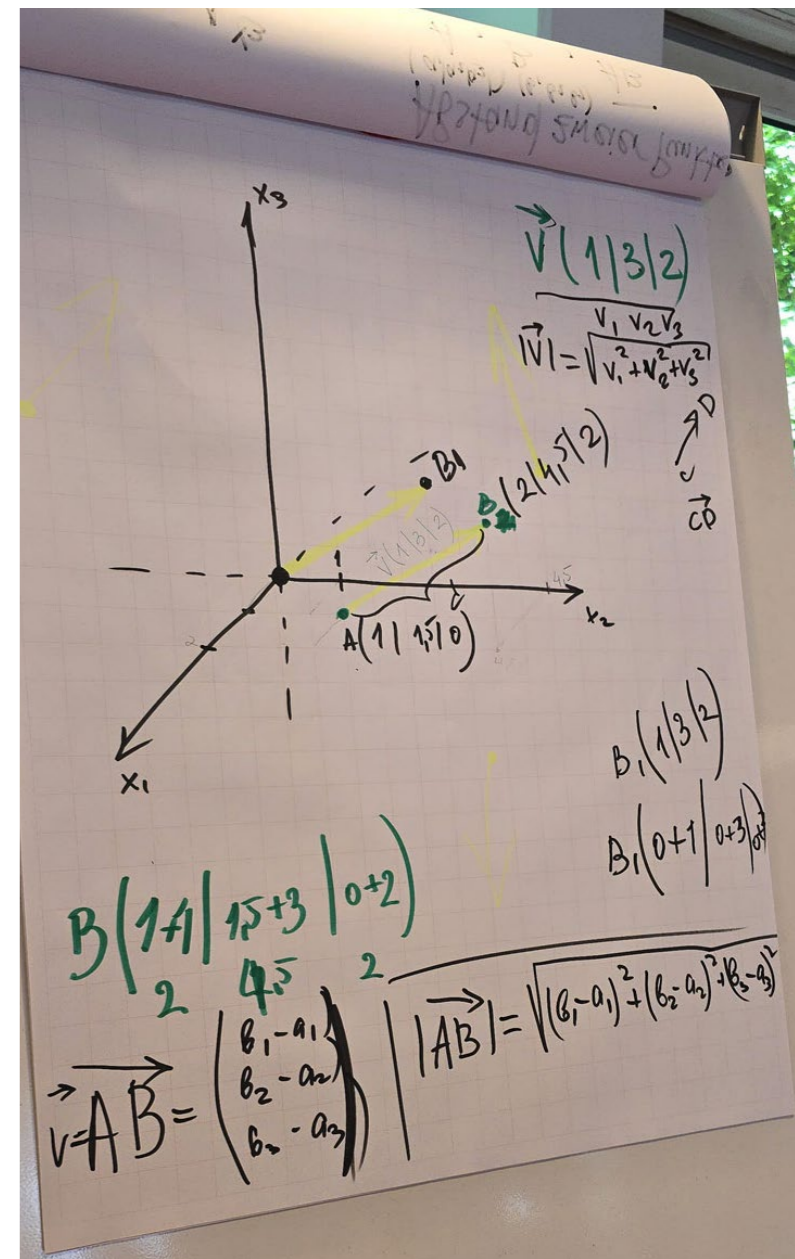 Abstand zweier Punkte
x₃
V⃗(1|3|2)
v₁ v₂ v₃
|V⃗| = √(v₁² + v₂² + v₃²)
D
C
CD⃗
B₁
B (2|4,5|2)
V⃗(1|3|2)
1
4,5
x₂
A(1|1,5|0)
2
x₁
B₁(1|3|2)
B₁(0+1|0+3|0+2)
B(1+1|1,5+3|0+2)
2 4,5 2
v⃗=AB⃗ = (b₁-a₁
b₂-a₂
b₃-a₃)
|AB⃗| = √((b₁-a₁)² + (b₂-a₂)² + (b₃-a₃)²)